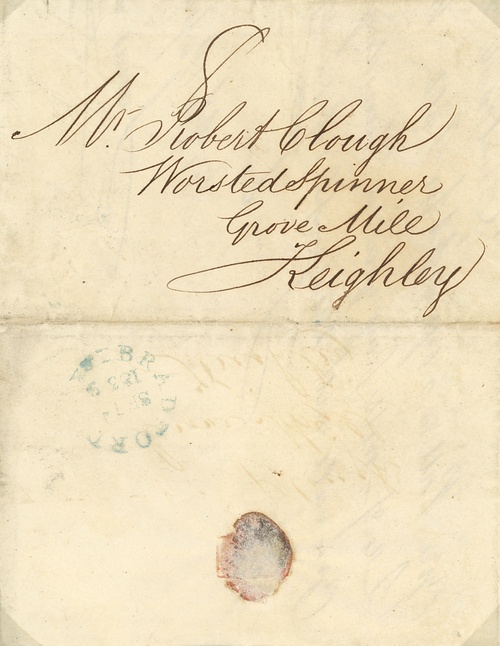 8
Mr. Robert Clough
Worsted Spinner
Grove Mill
Keighley
BRADFORD